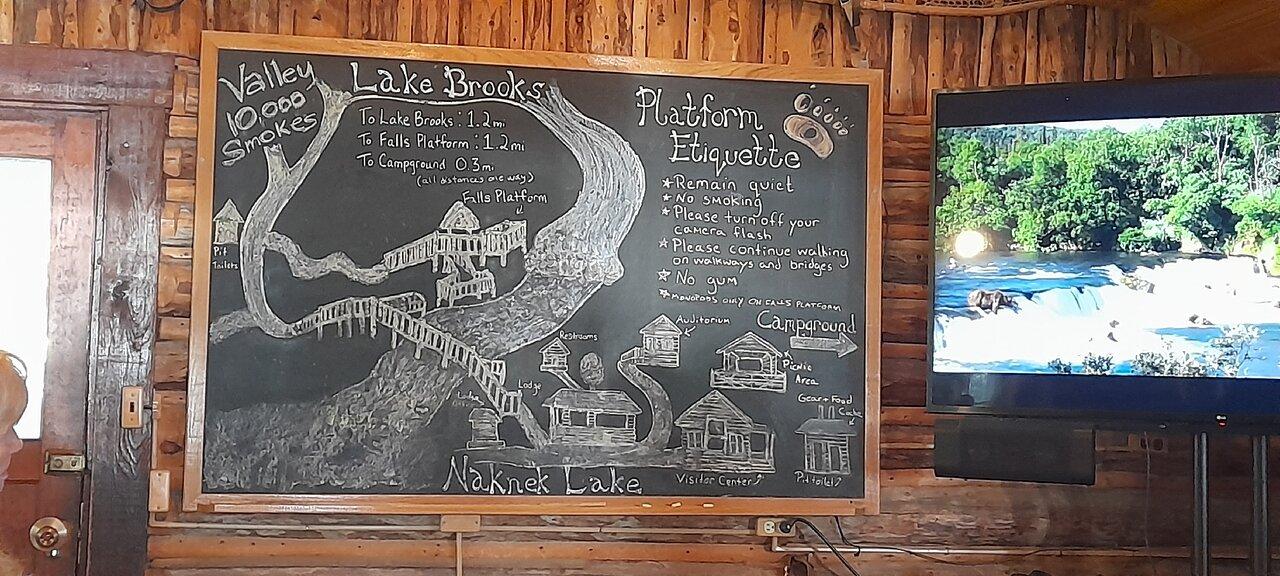 Valley
10,000
Smokes
Lake Brooks
To Lake Brooks: 1.2mi
To Falls Platform: 1.2mi
To Campground 0.3mi
(all distances one way)
Falls Platform
Pit
Toilets
Platform
Etiquette
Remain quiet
No smoking
Please turn off your
camera flash
Please continue walking
on walkways and bridges
No gum
MONOPODS ONLY ON FALLS PLATFORM
Restrooms
Auditorium
Campground
Picnic
Area
Lodge
Gear + Food
Cache
Naknek Lake
Visitor Center
Pit toilet
LG